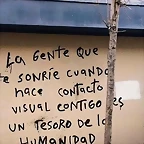 LA GENTE QUE
TE SONRÍE CUANDO
HACE CONTACTO
VISUAL CONTIGO ES
UN TESORO DE LA
HUMANIDAD